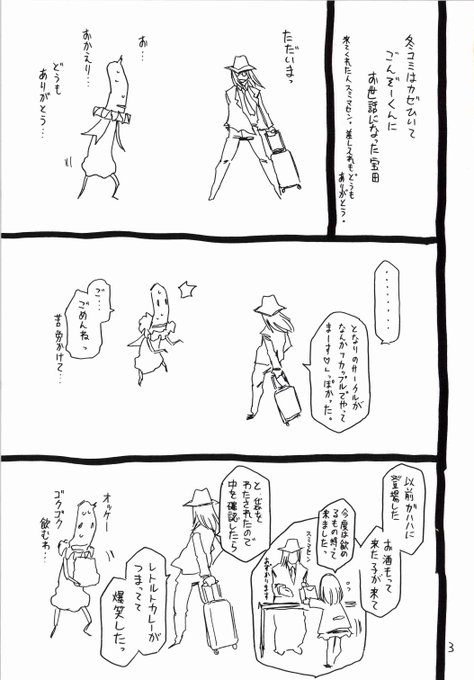 冬コミはカゼひいて
ごんぞーくんに
お世話になった宝田
来てくれた人スミマセン。差し入れもどうも
ありがとう。
ただいまっ
お…
おかえり…
どうも
ありがとう…
………
となりのサークルが
なんかカップルでやって
まーす♡っぽかった。
ご…
ごめんねっ
苦労かけて…
以前ガハハに
登場した
お酒もって
来た子が来て
今度は飲め
るもの持って
来ました。
スミマセン
あずかります
と、袋を
わたされたので
中を確認したら
レトルトカレーが
つまってて
爆笑したっ
オッケー
ゴクゴク
飲むわ…
3